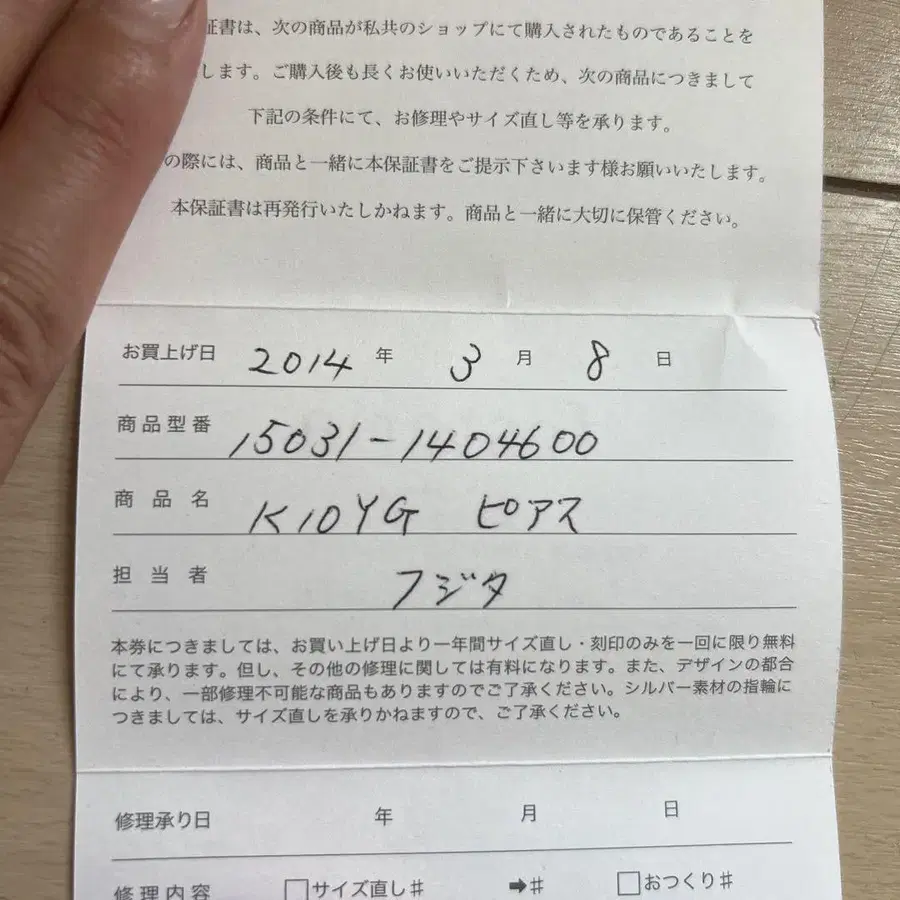 証書は、次の商品が私共のショップにて購入されたものであることを
します。ご購入後も長くお使いいただくため、次の商品につきまして
下記の条件にて、お修理やサイズ直し等を承ります。
の際には、商品と一緒に本保証書をご提示下さいます様お願いいたします。
本保証書は再発行いたしかねます。商品と一緒に大切に保管ください。
お買上げ日 2014 年 3 月 8 日
商品型番 15031-1404600
商品名 K10YG ピアス
担当者 フジタ
本券につきましては、お買い上げ日より一年間サイズ直し・刻印のみを一回に限り無料
にて承ります。但し、その他の修理に関しては有料になります。また、デザインの都合
により、一部修理不可能な商品もありますのでご了承ください。シルバー素材の指輪に
つきましては、サイズ直しを承りかねますので、ご了承ください。
修理承り日 年 月 日
修理内容 □サイズ直し# ➡# □おつくり#